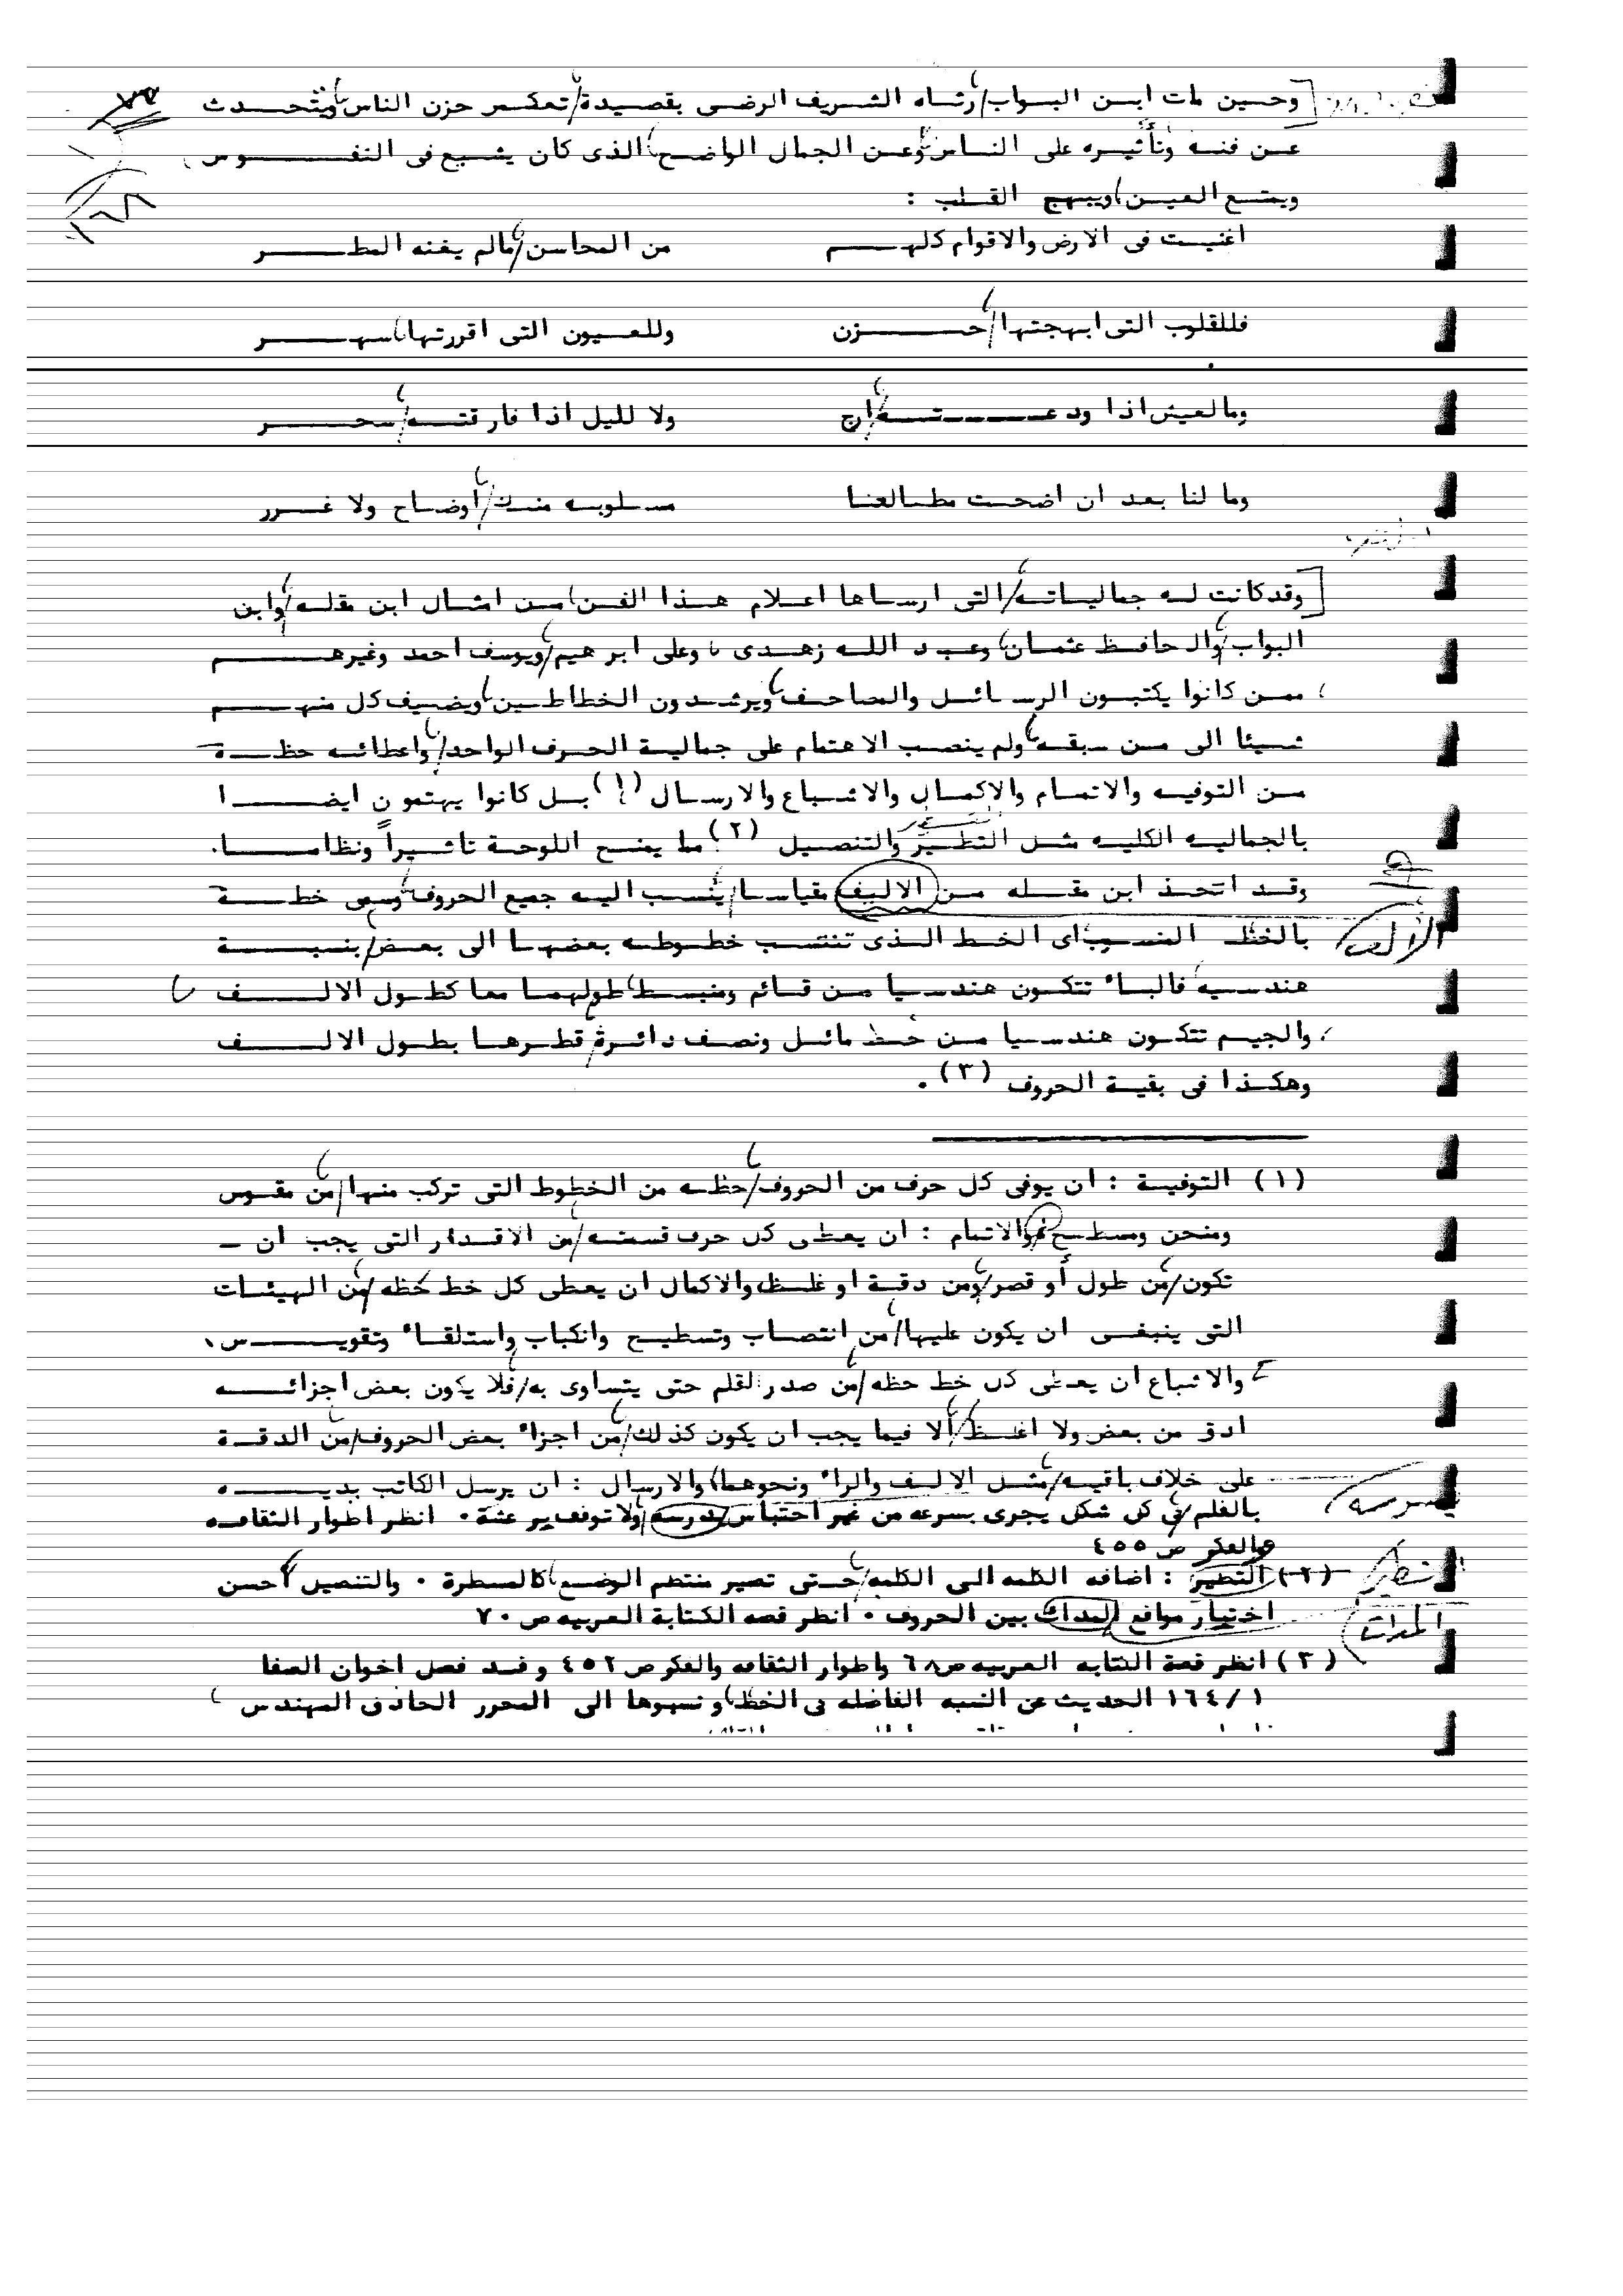 وحين مات ابن البواب رثاه الشريف الرضى بقصيدة تعكس حزن الناس ويتحدث
عن فنه وتأثيره على الناس وعن الجمال الواضح الذى كان يشيع فى النفوس
ويمتع العين ويبهج القلب :
اغنيت فى الارض والاقوام كلهم من المحاسن مالم يغنه المطر
فللقلوب التى ابهجتها حزن وللعيون التى اقررتها سهر
ومالعيش اذا ودعته ارج ولا لليل اذا فارقته سحر
وما لنا بعد ان اضحت مطالعنا مسلوبه منك اوضاح ولا غرر
وقد كانت له جمالياته التى ارساها اعلام هذا الفن من امثال ابن مقله وابن
البواب والحافظ عثمان وعبد الله زهدى ، وعلى ابرهيم ويوسف احمد وغيرهم
ممن كانوا يكتبون الرسائل والمصاحف ويرشدون الخطاطين ويضيف كل منهم
شيئا الى من سبقه ولم ينصب الاهتمام على جمالية الحرف الواحد واعطائه حظة
من التوفيه والاتمام والاكمال والاشباع والارسال (١) بل كانوا يهتمون ايضا
بالجماليه الكليه مثل التطير والتنصيل (٢) مما يمنح اللوحة تاثيراً ونظاما.
وقد اتخذ ابن مقله من الاليف مقياسا ينسب اليه جميع الحروف وسمى خطة
بالخط المنسوب اى الخط الذى تنتسب خطوطه بعضها الى بعض بنسبة
الالف
هندسيه فالباء تتكون هندسيا من قائم ومنبسط طولهما معا كطول الالف
والجيم تتكون هندسيا من خط مائل ونصف دائرة قطرها بطول الالف
وهكذا فى بقية الحروف (٣) .
(١) التوفية : ان يوفى كل حرف من الحروف حظه من الخطوط التى تركب منها من مقوس
ومنحن ومسطح والاتمام : ان يعطى كل حرف قسمته من الاقدار التى يجب ان -
تكون من طول أو قصر ومن دقة او غلظ والاكمال ان يعطى كل خط حظه من الهيئات
التى ينبغى ان يكون عليها من انتصاب وتسطيح وانكباب واستلقاء وتقويس،
والاشباع ان يعطى كل خط حظه من صدر القلم حتى يتساوى به فلا يكون بعض اجزائه
ادق من بعض ولا اغلظ الا فيما يجب ان يكون كذلك من اجزاء بعض الحروف من الدقة
على خلاف باقيه مثل الالف والراء ونحوهما والارسال : ان يرسل الكاتب يديه
بالقلم فى كل شكل يجرى بسرعه من غير احتباس يدرسه ولا توقف يرعشة . انظر اطوار الثقافه
والفكر ص ٤٥٥
(٢) التطير : اضافه الكلمه الى الكلمه حتى تصير منتظم الوضع كالمسطرة . والتنصيل احسن
اختيار مواقع المدات بين الحروف . انظر قصه الكتابة العربيه ص ٧٠
المدات
(٣) انظر قصة الكتابه العربيه ص ٦٨ واطوار الثقافه والفكر ص ٤٥٢ وقد فصل اخوان الصفا
١٦٤/١ الحديث عن النسبه الفاضله فى الخط ونسبوها الى المحرر الحاذق المهندس